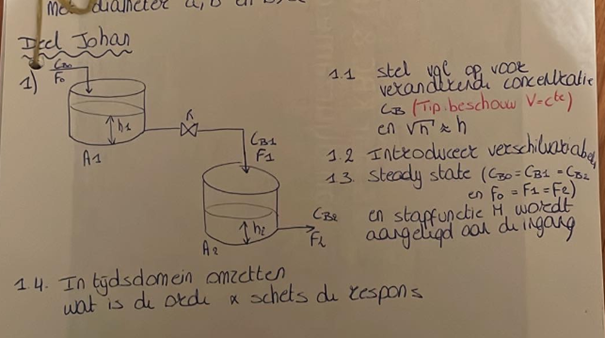 met diameter
Deel Johan
1)
C_B0
F_0
h_1
A_1
K
C_B1
F_1
h_2
A_2
C_B2
F_2
1.1 stel vgl op voor
veranderende concentratie
C_B (Tip: beschouw V=c^te)
en √h ≈ h
1.2 Introduceer verschilvariabelen
1.3 steady state (C_B0 = C_B1 = C_B2
en F_0 = F_1 = F_2)
en stapfunctie M wordt
aangelegd aan de ingang
1.4. In tijdsdomein omzetten
wat is de orde & schets de respons